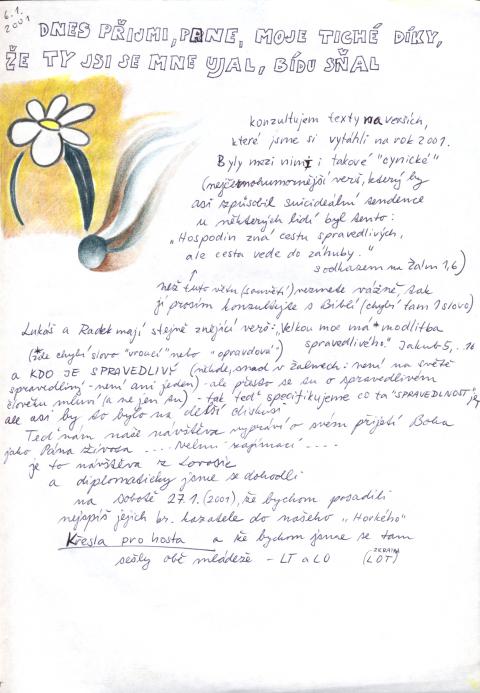 6.1.
2001
DNES PŘIJMI, PANE, MOJE TICHÉ DÍKY,
ŽE TY JSI SE MNE UJAL, BÍDU SŇAL
konzultujem texty na verších,
které jsme si vytáhli na rok 2001.
Byly mezi nimi i takové "cynické"
(nejčernohumornější verš, který by
asi způsobil suicideální tendence
u některých lidí byl tento:
„Hospodin zná cestu spravedlivých,
ale cesta vede do záhuby."
s odkazem na Žalm 1,6)
než tuto větu (souvětí) vezmete vážně, tak
ji prosím konzultujte s Biblí (chybí tam 1 slovo)
Lukáš a Radek mají stejně znějící verš: „Velkou moc má * modlitba
(*zde chybí slovo "vroucí" nebo "opravdová") spravedlivého." Jakub 5,..16
a KDO JE SPRAVEDLIVÝ (někde, snad v Žalmech: není na světě
spravedlivý - není ani jeden) - ale přesto se su o spravedlivém
člověku mluví (a ne jen su) - tak teď specifikujeme co ta "SPRAVEDLNOST" je,
ale asi by to bylo na delší diskusi
Teď nám naše návštěva vypráví o svém přijetí Boha
jako Pána života .... Velmi zajímací ....
je to návštěva z Lovosic
a diplomaticky jsme se dohodli
na sobotě 27.1. (2001), že bychom posadili
nejspíš jejich br. kazatele do našeho „Horkého"
Křesla pro hosta a že bychom jsme se tam
sešly obě mládeže - LT a LO (ZKRATKA LOT)